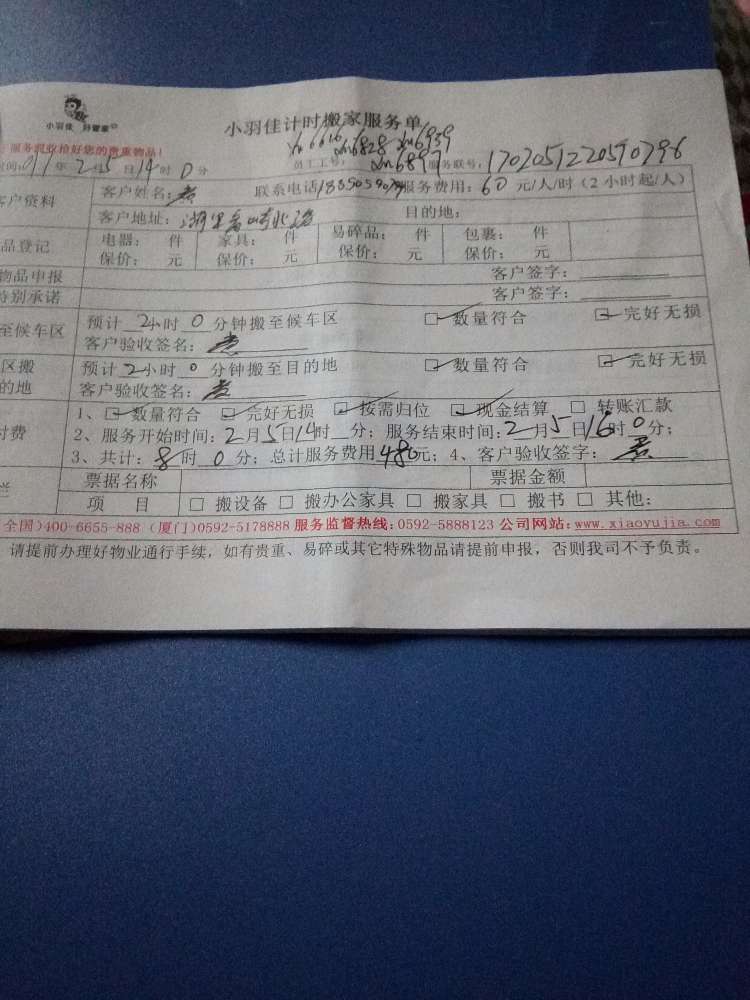 小羽佳 好管家
小羽佳计时搬家服务单
服务前收拾好您的贵重物品!
年2月5日14时0分 员工工号: 6616 6828 6939 6897 服务联号: 1702051220590796
客户资料 客户姓名: 联系电话 服务费用: 60 元/人/时 (2小时起/人)
客户地址: 目的地:
品登记 电器: 件 家具: 件 易碎品: 件 包裹: 件
保价: 元 保价: 元 保价: 元 保价: 元
物品申报 客户签字:
特别承诺 客户签字:
至候车区 预计 2小时 0 分钟搬至候车区 数量符合 完好无损
客户验收签名:
区搬 预计 2小时 0 分钟搬至目的地 数量符合 完好无损
的地 客户验收签名:
1、 数量符合 完好无损 按需归位 现金结算 转账汇款
付费 2、服务开始时间: 2月5日14时 分; 服务结束时间: 2月5日16时0分;
3、共计: 8时 0分; 总计服务费用480元; 4、客户验收签字:
票据名称 票据金额
栏 项 目 搬设备 搬办公家具 搬家具 搬书 其他:
全国)400-6655-888 (厦门)0592-5178888 服务监督热线:0592-5888123 公司网站:www.xiaoyujia.com
请提前办理好物业通行手续, 如有贵重、易碎或其它特殊物品请提前申报, 否则我司不予负责。